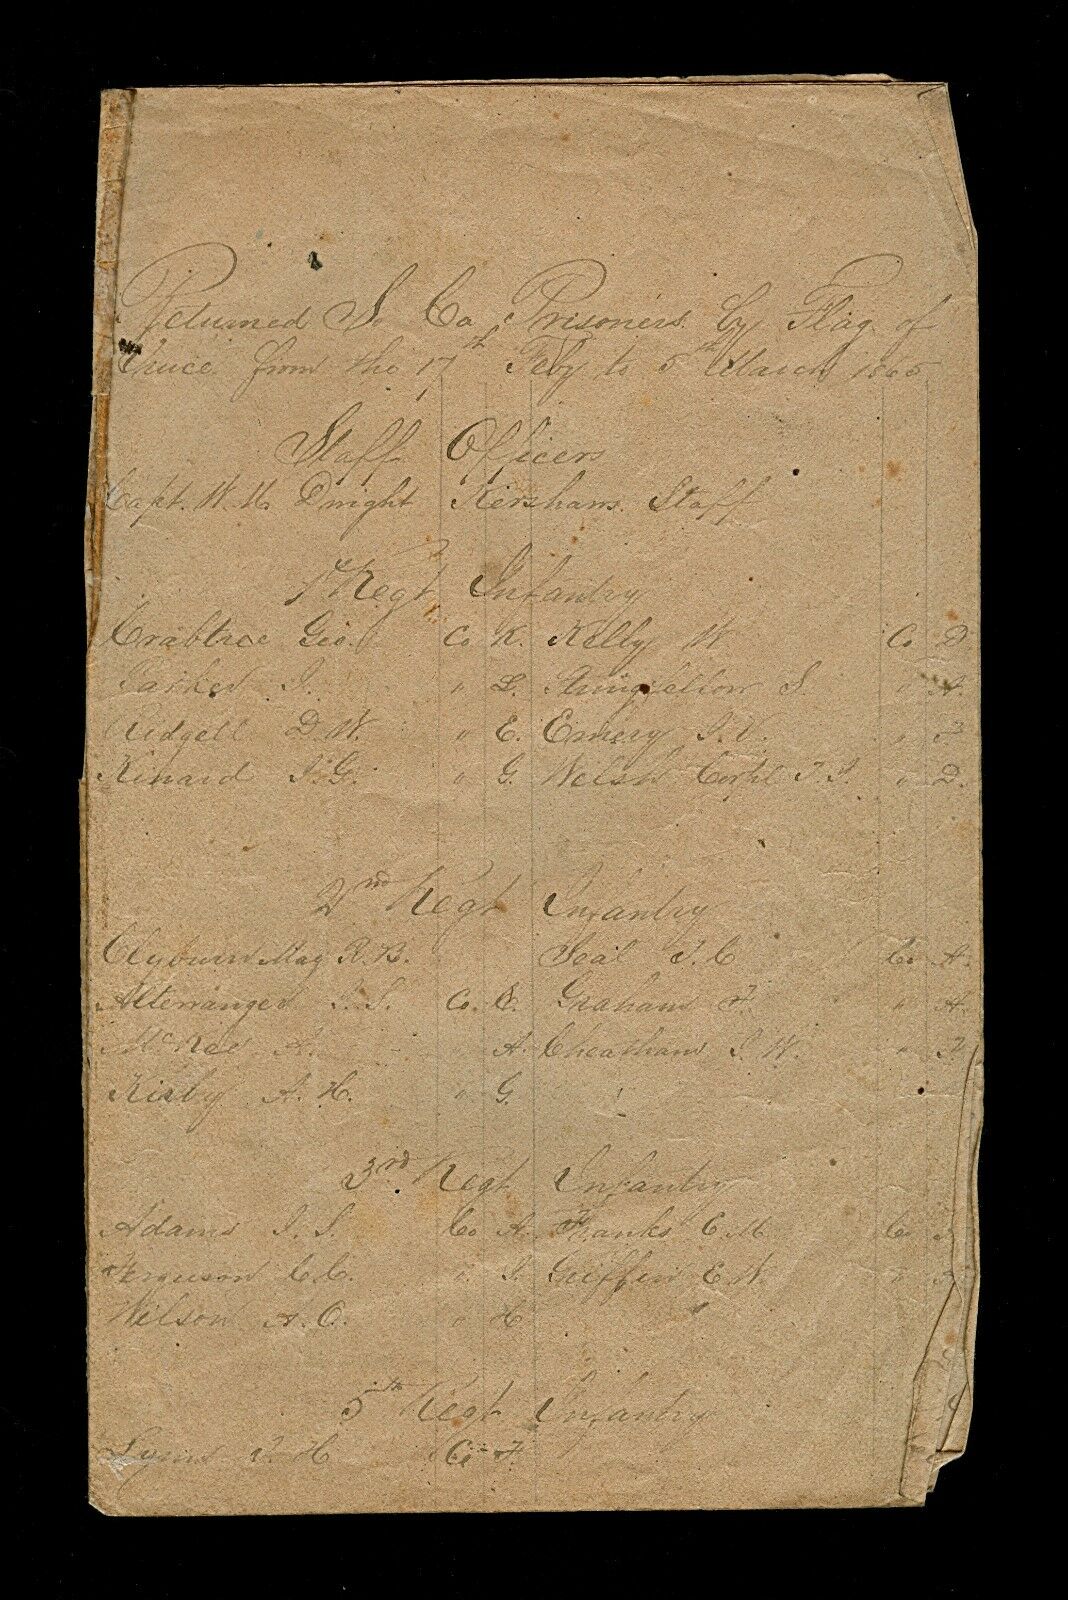 Returned S. Ca Prisoners by Flag of
Truce from the 17th Feby to 5th March 1865
Staff Officers
Capt. W. H. Dwight Kershaws Staff
1st Regt Infantry
Crabtree Geo. Co K. Kelly W Co D
Parker J. " L. S. " A.
Ridgell D. W. " E. Emery J. V. " F
Kinard J. G. " G. Welsh Corpl T. J. " D.
2nd Regt Infantry
Clyburn Maj R. B. J. C Co. A.
J. S. Co. E. Graham F. " A.
McKee A. " A. Cheatham J. W. " F
Kirby A. H. " G.
3rd Regt Infantry
Adams J. S. Co A. Franks C. M Co
Ferguson C. C. " I. Griffin E. W. "
Wilson A. C. " H
5th Regt Infantry
J. H Co F.